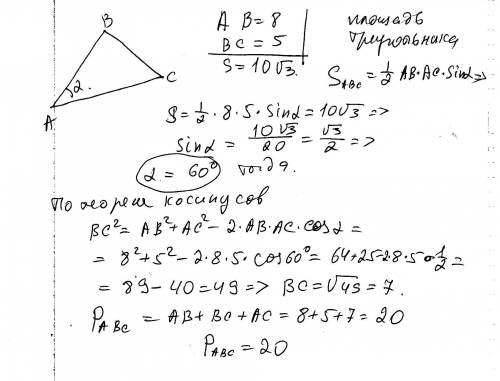 B
A
C
2
A B = 8
BC = 5
S = 10√3.
площадь
треугольника
S_ABC = 1/2 AB·AC·Sinα =>
S = 1/2 · 8 · 5 · Sinα = 10√3 =>
Sinα = 10√3/20 = √3/2 =>
α = 60° тогда.
По теореме косинусов
BC² = AB² + AC² - 2·AB·AC·cosα =
= 8² + 5² - 2·8·5·cos60° = 64+25-2·8·5·1/2 =
= 89 - 40 = 49 => BC = √49 = 7.
P_ABC = AB + BC + AC = 8+5+7 = 20
P_ABC = 20